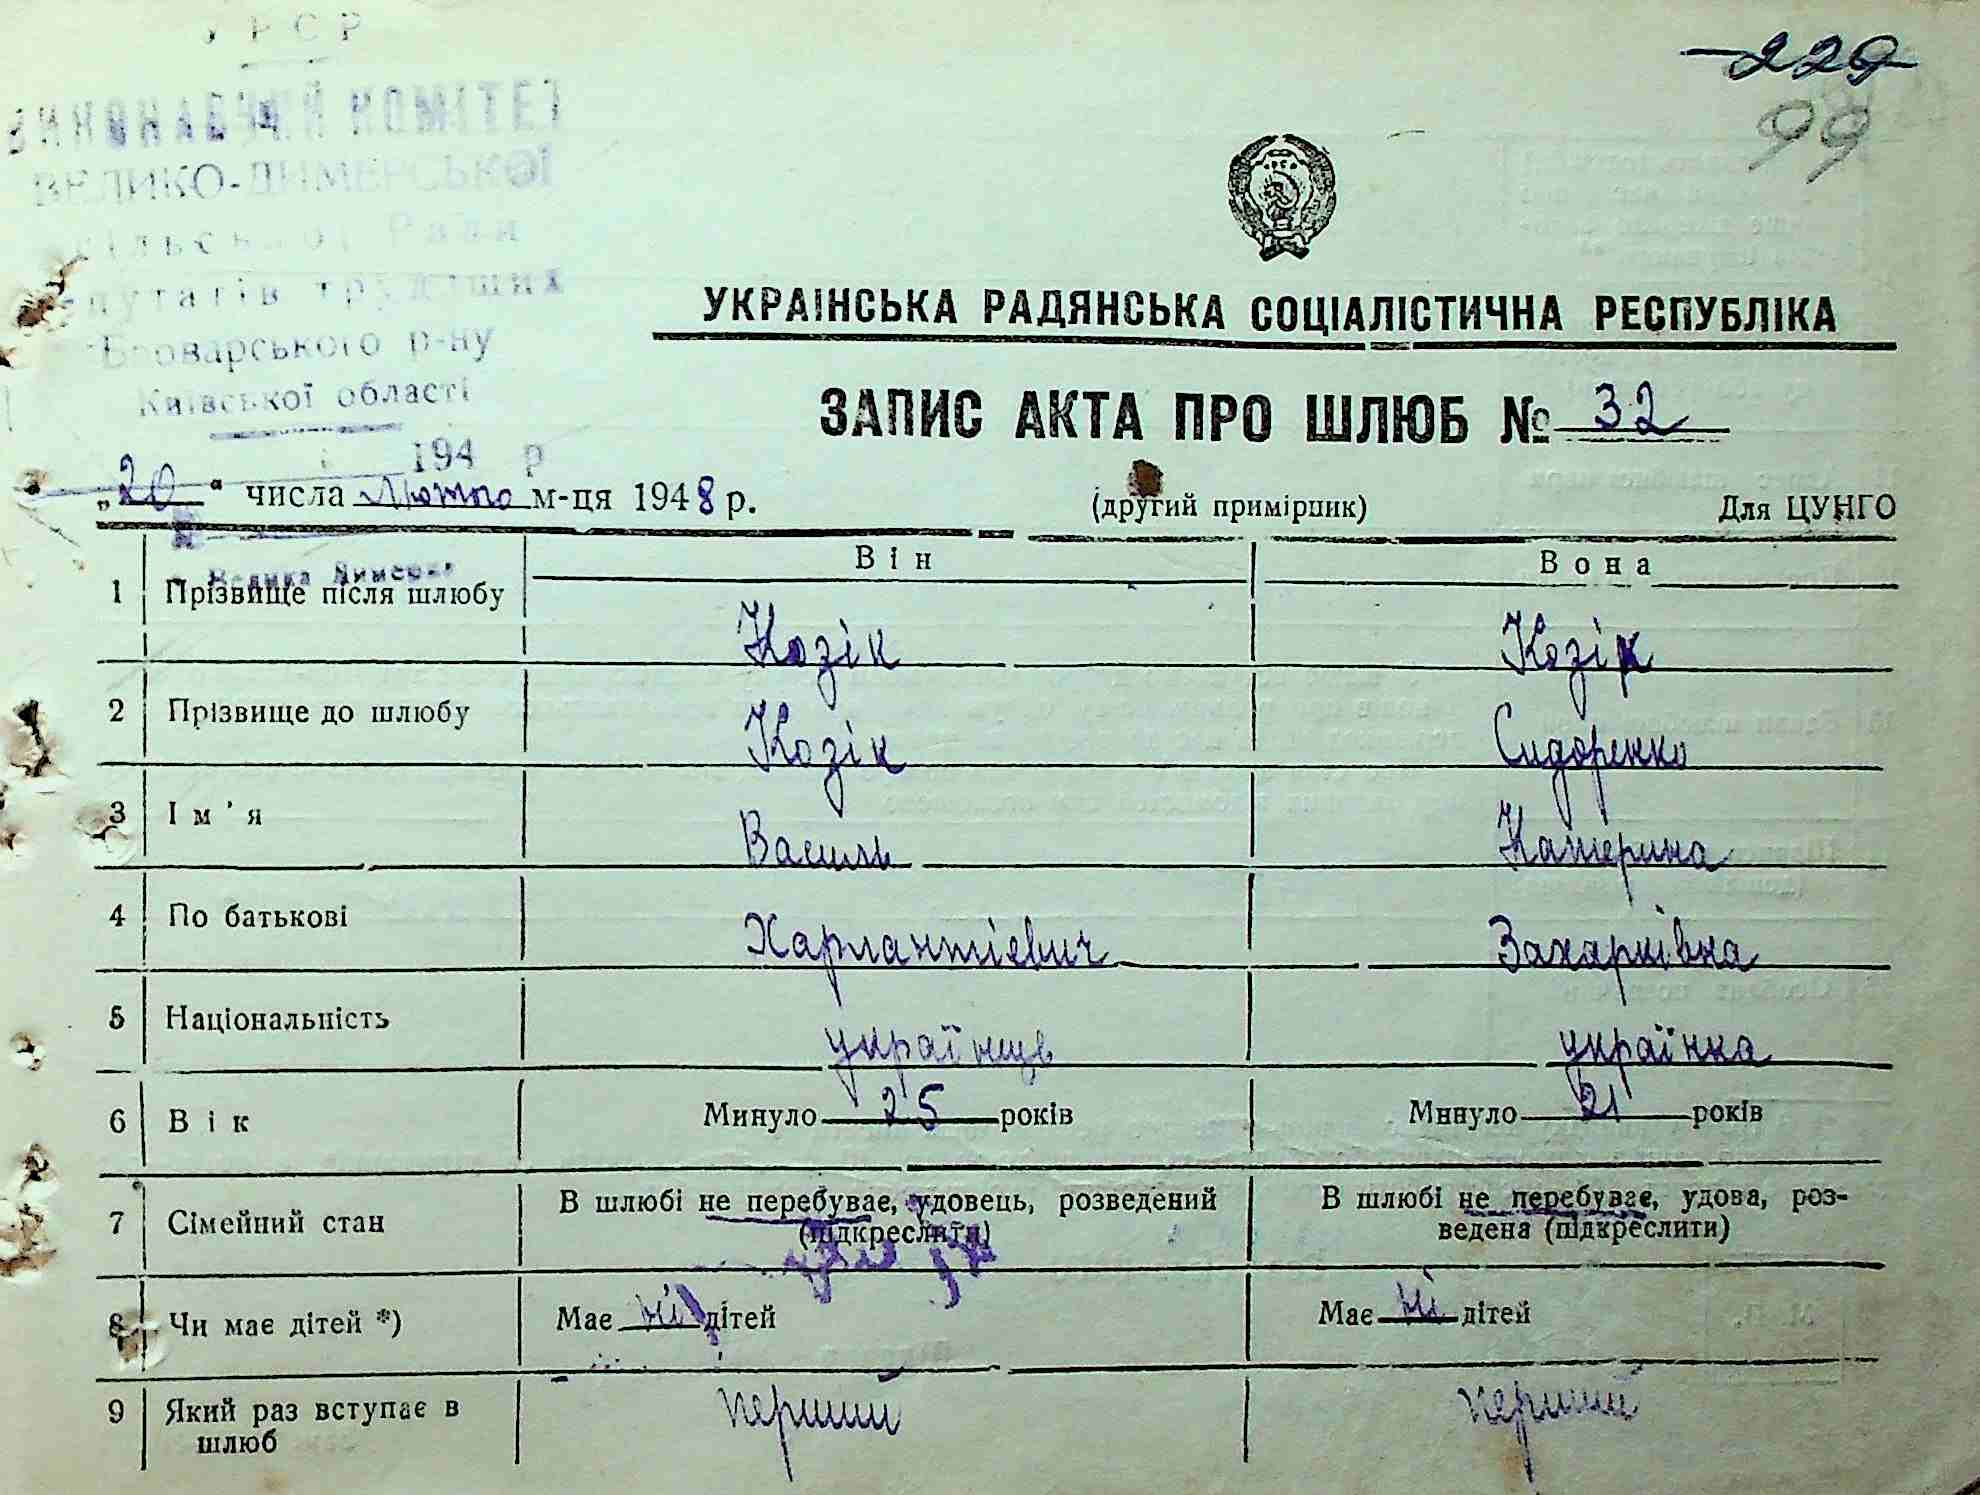 УРСР
ВИКОНАВЧИЙ КОМІТЕТ
ВЕЛИКО-ДИМЕРСЬКОЇ
сільської Ради
депутатів трудящих
Броварського р-ну
Київської області
194 р
Велика Димерка
229
99
УКРАЇНСЬКА РАДЯНСЬКА СОЦІАЛІСТИЧНА РЕСПУБЛІКА
ЗАПИС АКТА ПРО ШЛЮБ № 32
„20“ числа лютого м-ця 1948 р. (другий примірник) Для ЦУНГО
Він Вона
1 Прізвище після шлюбу Козік Козік
2 Прізвище до шлюбу Козік Сидоренко
3 Ім'я Василь Катерина
4 По батькові Харлантієвич Захарківна
5 Національність українець українка
6 Вік Минуло 25 років Минуло 21 років
7 Сімейний стан В шлюбі не перебуває, удовець, розведений (підкреслити) В шлюбі не перебуває, удова, роз-
ведена (підкреслити)
8 Чи має дітей *) Має ні дітей Має ні дітей
9 Який раз вступає в шлюб перший перший